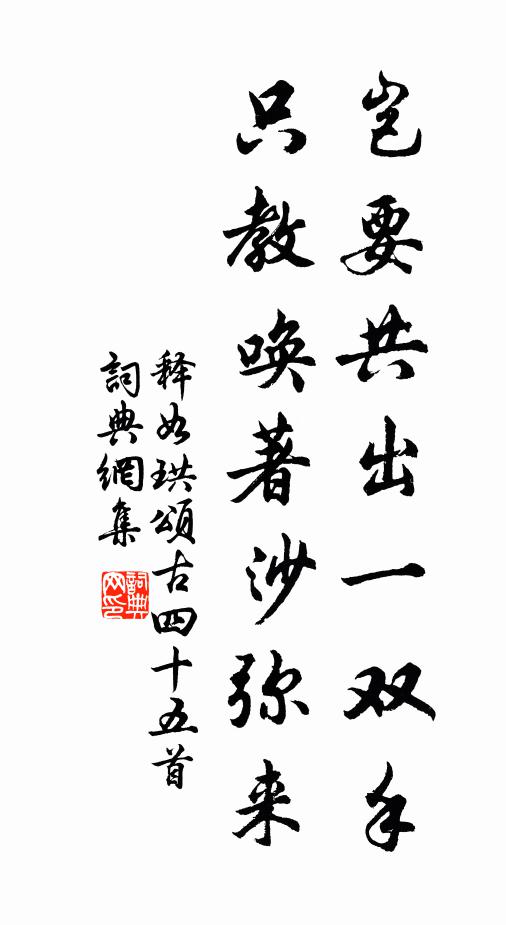 岂要共出一双手
只教唤著沙弥来
释如珙颂古四十五首
詞典網集
詞典网印